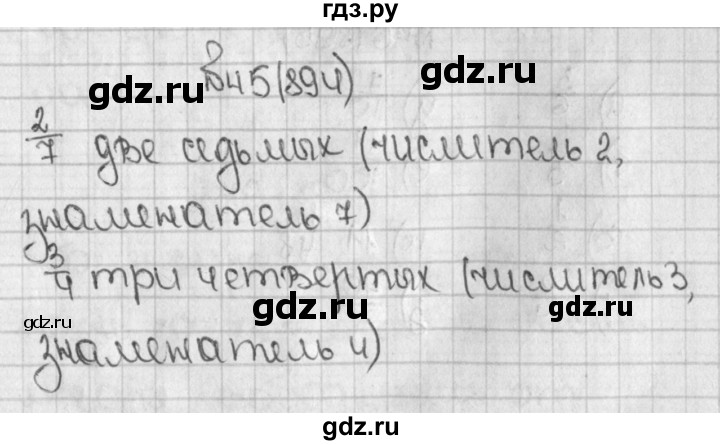 гдз.ру
№45(894)
2/7 две седьмых (числитель 2,
знаменатель 7)
3/4 три четвертых (числитель 3,
знаменатель 4)
gdz.ru
gdz.ru
gdz.ru
gdz.ru
gdz.ru
gdz.ru
gdz.ru
gdz.ru
gdz.ru